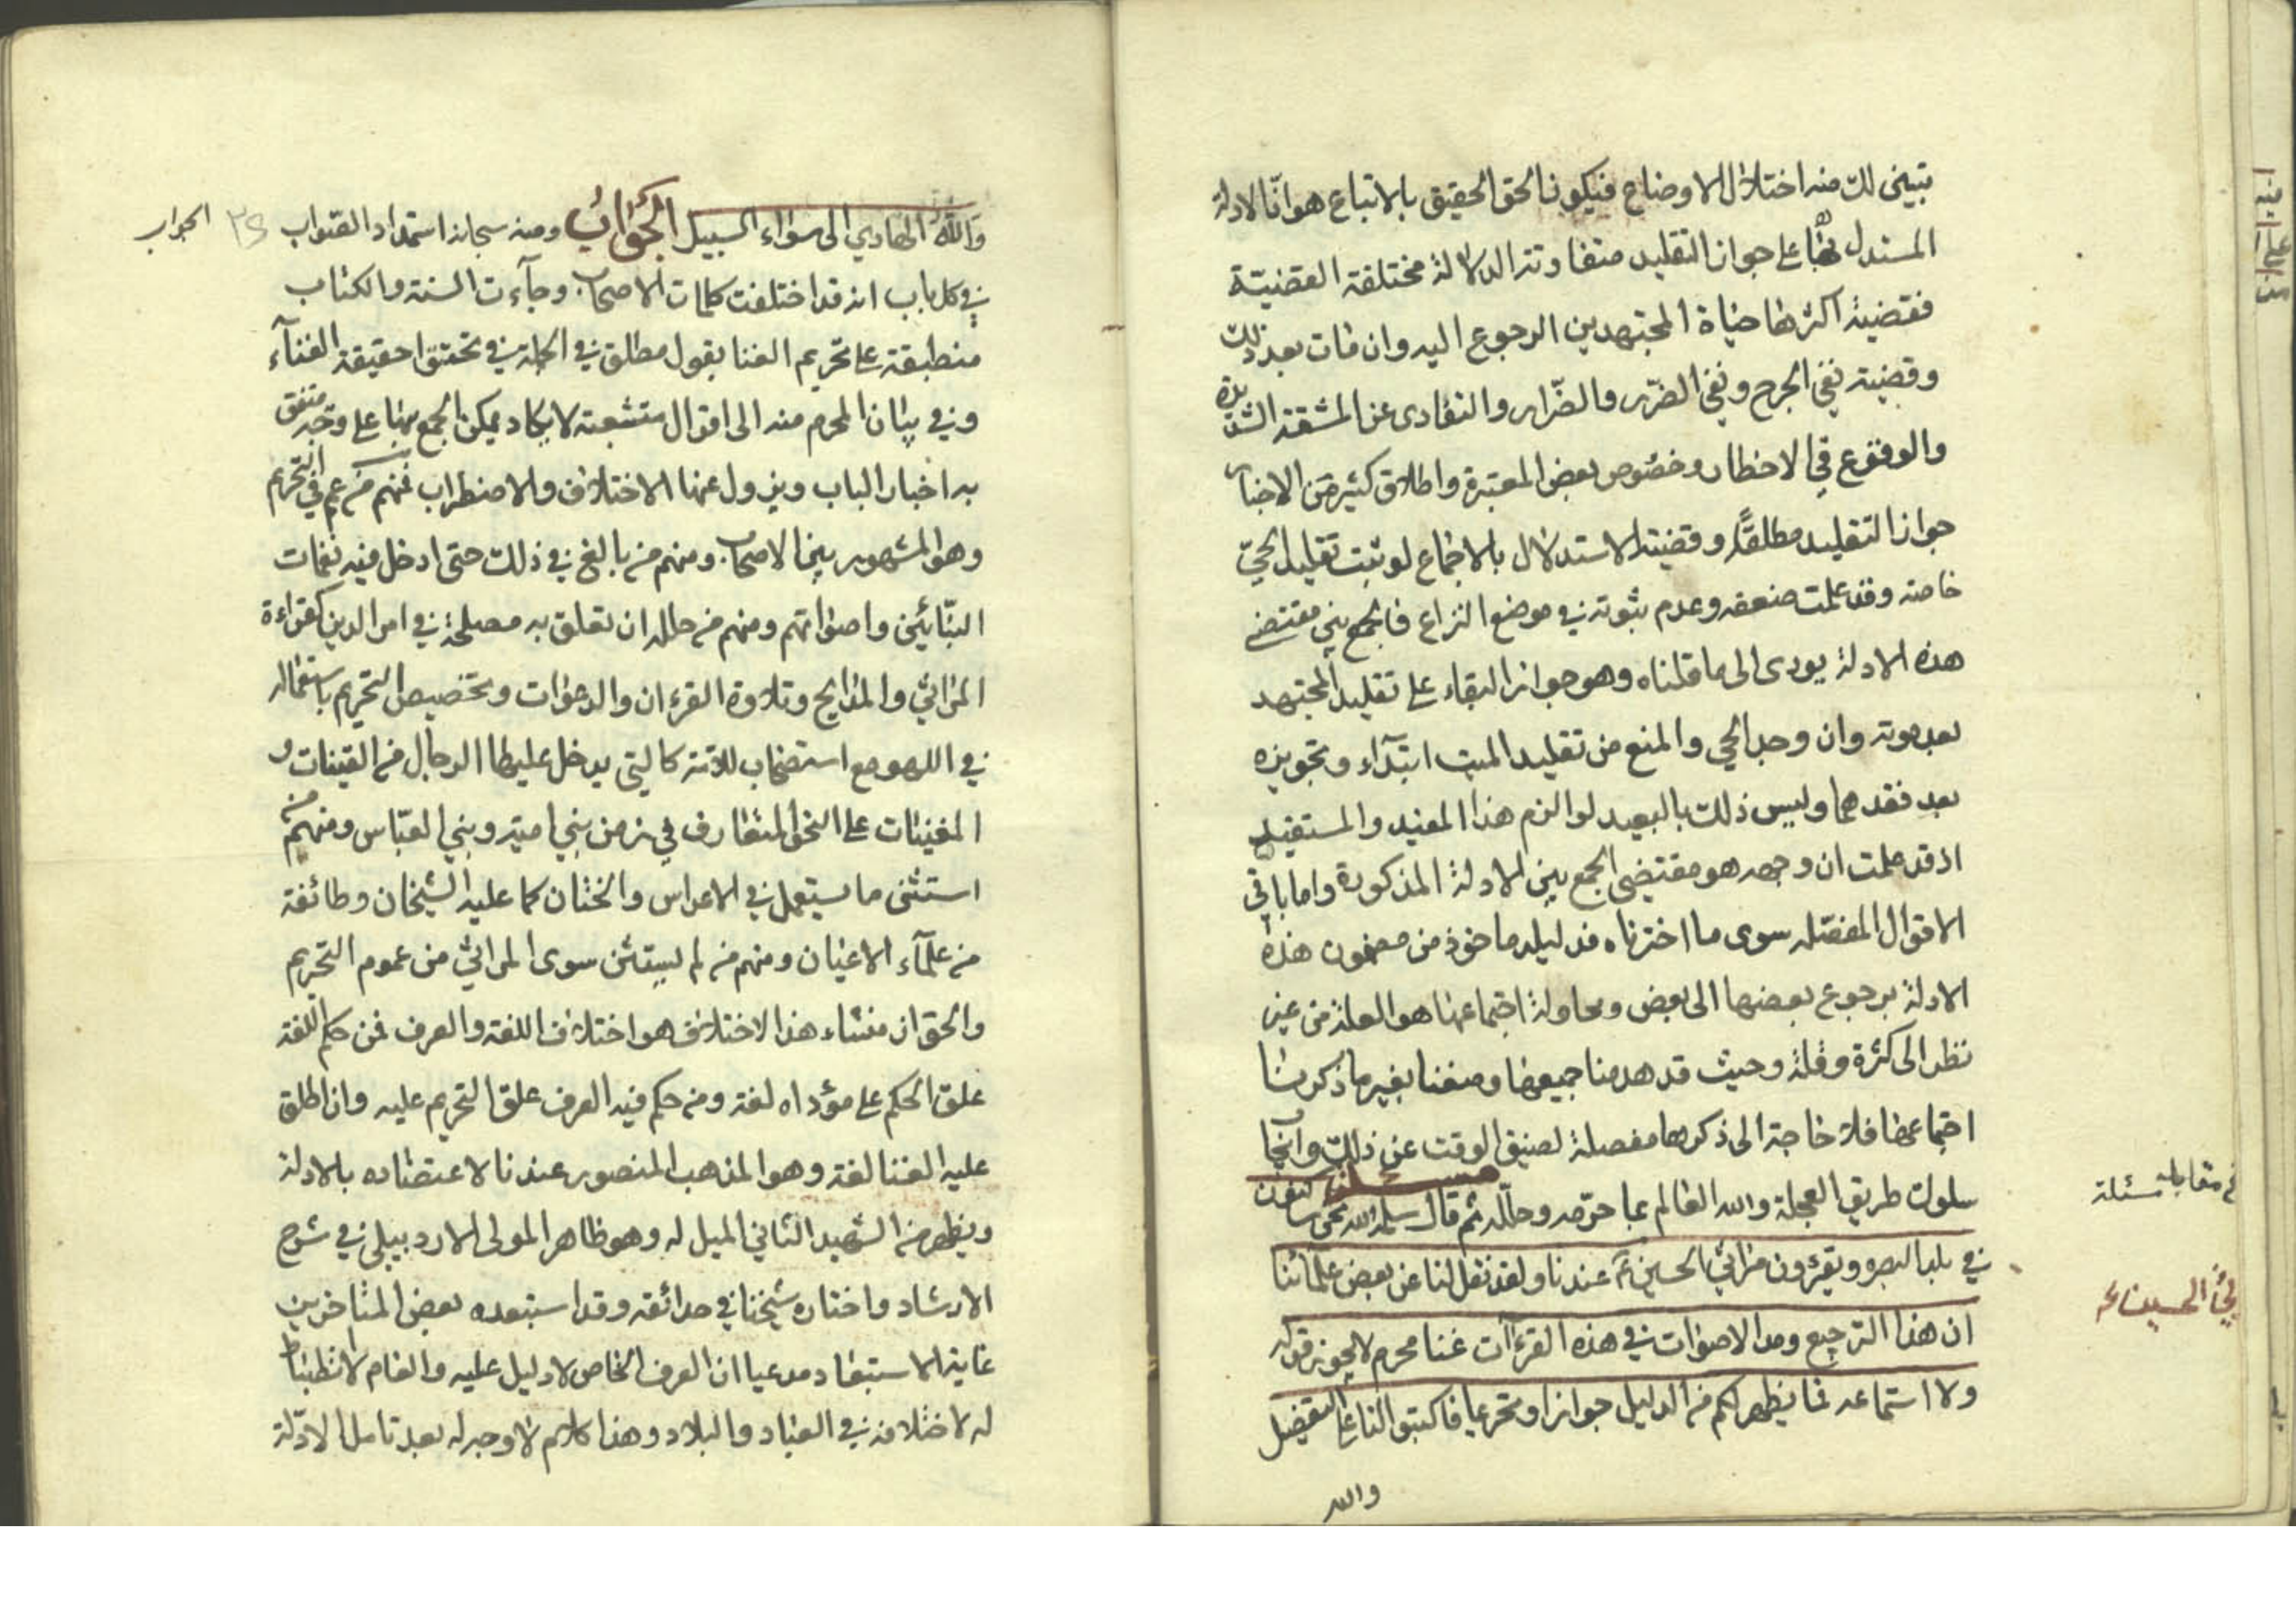 تبين لك منه اختلال الاوضاع فيكون الحق الحقيق بالاتباع هو ان الادلة
المستدل بها على جواز التقليد متفاوتة الدلالة مختلفة القضية
فقضية اكثرها حياة المجتهدين الرجوع اليه وان مات بعد ذلك
وقضية نفي الحرج ونفي الضرر والضرار والتفادى عن المشقة الشديدة
والوقوع في الاخطار وخصوص بعض المعتبرة واطلاق كثير من الاخبار
جواز التقليد مطلقا وقضية الاستدلال بالاجماع لو ثبت تقليد الحي
خاصة وقد علمت ضعفه وعدم ثبوته في موضع النزاع فالجمع بين مقتضى
هذه الادلة يودى الى ما قلناه وهو جواز البقاء على تقليد المجتهد
بعد موته وان وجد الحي والمنع من تقليد الميت ابتدآء وتجويزه
بعد فقدهما وليس ذلك بالبعيد لو الزم هذا المفيد والمستفيد
اذ قد علمت ان وجهه هو مقتضى الجمع بين الادلة المذكورة واما باقي
الاقوال المفصله سوى ما اخترناه فدليله ماخوذ من مضمون هذه
الادلة برجوع بعضها الى بعض ومحاولة اجتماعها هو العلة من غير
نظر الى كثرة وقلة وحيث قد هدمنا جميعها وضعفنا بغير ما ذكرنا
اجتماعها فلا حاجة الى ذكرها مفصلة لضيق الوقت عن ذلك وانجا
سلوك طريق العجلة والله العالم بما حرمه وحلله ثم قال سلمه الله
في بلد البصره ويقرؤن مراثي الحسين عندنا ولقد نقل لنا عن بعض علمائنا
ان هذا الترجيع ومد الاصوات في هذه القرءآت غنا محرم لا يجوز قوله
ولا استماعه فما يظهر لكم من الدليل جوازا وتحريما فاكتبوا لنا على التفصيل
والله
مقابلة مسئلة
الحسين
والله الهادي الى سواء السبيل الجواب ومنه سبحانه استمداد الصواب
الجواب
في كل باب انه قد اختلفت كلمات الاصحاب وجآءت السنة والكتاب
منطبقة على تحريم الغنا بقول مطلق في الجملة في تحقق حقيقة الغنآء
وفي بيان المحرم منه الى اقوال متشعبة لا يكاد يمكن الجمع بينها على وجه متفق
به اخبار الباب ويزول عنها الاختلاف والاضطراب فمنهم من عم في التحريم
وهو المشهور بين الاصحاب ومنهم من بالغ في ذلك حتى ادخل فيه نغمات
البنائين واصواتهم ومنهم من حلله ان تعلق به مصلحة في امر الدين كقراءة
المراثي والمدايح وتلاوة القرءان والدعوات وتخصيص التحريم باستعماله
في اللهو مع استصحاب للآته كالتي يدخل عليها الرجال من القينات و
المغنيات على النحو المتعارف في زمن بني امية وبني العباس ومنهم من
استثنى ما يستعمل في الاعراس والختان كما عليه الشيخان وطائفة
من علمآء الاعيان ومنهم من لم يستثن سوى المراثي من عموم التحريم
والحق ان منشاء هذا الاختلاف هو اختلاف اللغة والعرف فمن حكم اللغة
علق الحكم على مؤداه لغة ومن حكم فيه العرف علق التحريم عليه وان اطلق
عليه الغنا لغة وهو المذهب المنصور عندنا لاعتضاده بالادلة
ويظهر من الشهيد الثاني الميل له وهو ظاهر المولى الاردبيلي في شرح
الارشاد واختاره شيخنا في حدائقه وقد استبعده بعض المتاخرين
غاية الاستبعاد مدعيا ان العرف الخاص لا دليل عليه والعام لا انضباط
له لاختلافه في العباد والبلاد وهذا كلام لا وجه له بعد تامل الادلة